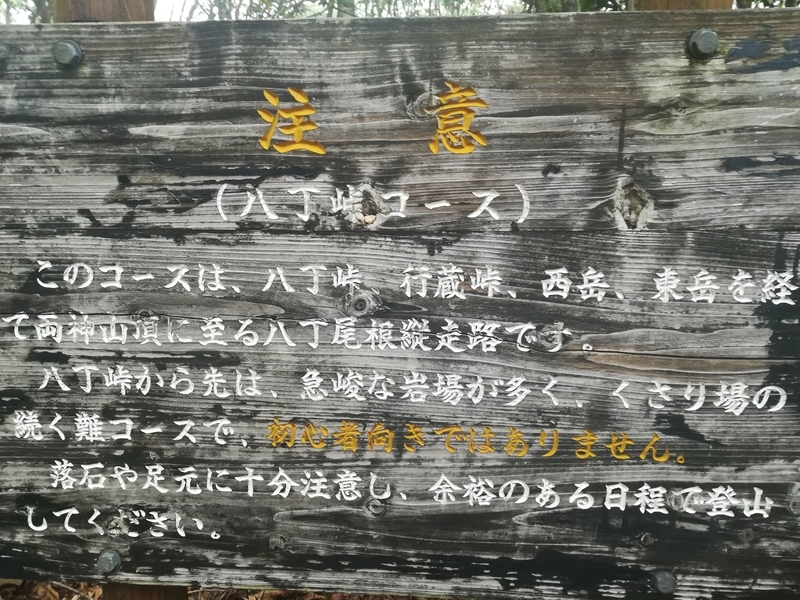 注意
(八丁峠コース)
このコースは、八丁峠、行蔵峠、西岳、東岳を経
て両神山頂に至る八丁尾根縦走路です。
八丁峠から先は、急峻な岩場が多く、くさり場の
続く難コースで、初心者向きではありません。
落石や足元に十分注意し、余裕のある日程で登山
してください。